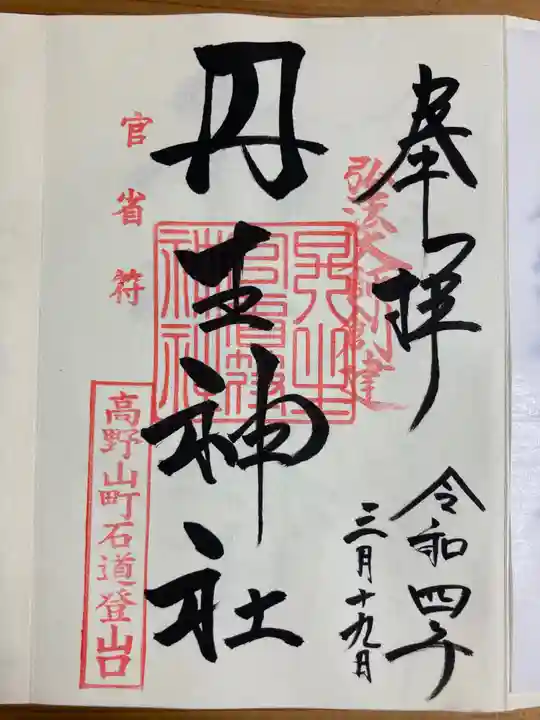 奉拝
弘法大師創建
令和四年
三月十九日
丹生神社
丹生官省符神社
官省符
高野山町石道登山口